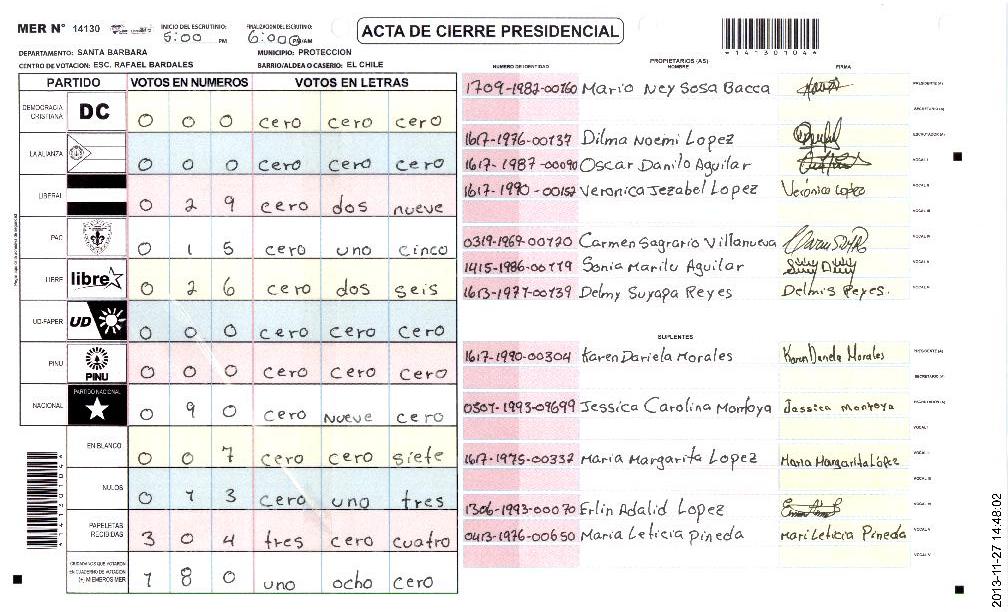 MER N° 14130 INICIO DEL ESCRUTINIO: 5:00 PM FINALIZACION DEL ESCRUTINIO: 6:00 PM/AM
ACTA DE CIERRE PRESIDENCIAL
*14130104*
DEPARTAMENTO: SANTA BARBARA MUNICIPIO: PROTECCION
CENTRO DE VOTACION: ESC. RAFAEL BARDALES BARRIO/ALDEA O CASERIO: EL CHILE
PARTIDO VOTOS EN NUMEROS VOTOS EN LETRAS
DEMOCRACIA CRISTIANA DC 0 0 0 cero cero cero
LA ALIANZA 0 0 0 cero cero cero
LIBERAL 0 2 9 cero dos nueve
PAC 0 1 5 cero uno cinco
LIBRE libre 0 2 6 cero dos seis
UD-FAPER UD 0 0 0 cero cero cero
PINU PINU 0 0 0 cero cero cero
NACIONAL PARTIDO NACIONAL 0 9 0 cero nueve cero
EN BLANCO 0 0 7 cero cero siete
NULOS 0 1 3 cero uno tres
PAPELETAS RECIBIDAS 3 0 4 tres cero cuatro
CIUDADANOS QUE VOTARON EN CUADERNO DE VOTACION (+) MIEMBROS MER 1 8 0 uno ocho cero
PROPIETARIOS (AS)
NUMERO DE IDENTIDAD NOMBRE FIRMA
1709-1982-00160 Mario Ney Sosa Bacca PRESIDENTE (A)
SECRETARIO (A)
1617-1976-00137 Dilma Noemi Lopez ESCRUTADOR (A)
1617-1987-00090 Oscar Danilo Aguilar VOCAL I
1617-1990-00152 Veronica Jezabel Lopez Verónica Lopez VOCAL II
VOCAL III
0319-1969-00120 Carmen Sagrario Villanueva VOCAL IV
1415-1986-00119 Sonia Marilu Aguilar VOCAL V
1613-1977-00139 Delmy Suyapa Reyes Delmis Reyes.
SUPLENTES
1617-1990-00304 Karen Dariela Morales Karen Dariela Morales PRESIDENTE (A)
SECRETARIO (A)
0307-1993-09699 Jessica Carolina Montoya Jessica Montoya ESCRUTADOR (A)
VOCAL I
1617-1975-00332 Maria Margarita Lopez Maria Margarita López VOCAL II
VOCAL III
1306-1993-00070 Erlin Adalid Lopez VOCAL IV
0413-1976-00650 Maria Leticia Pineda Mari Leticia Pineda VOCAL V
2013-11-27 14:48:02